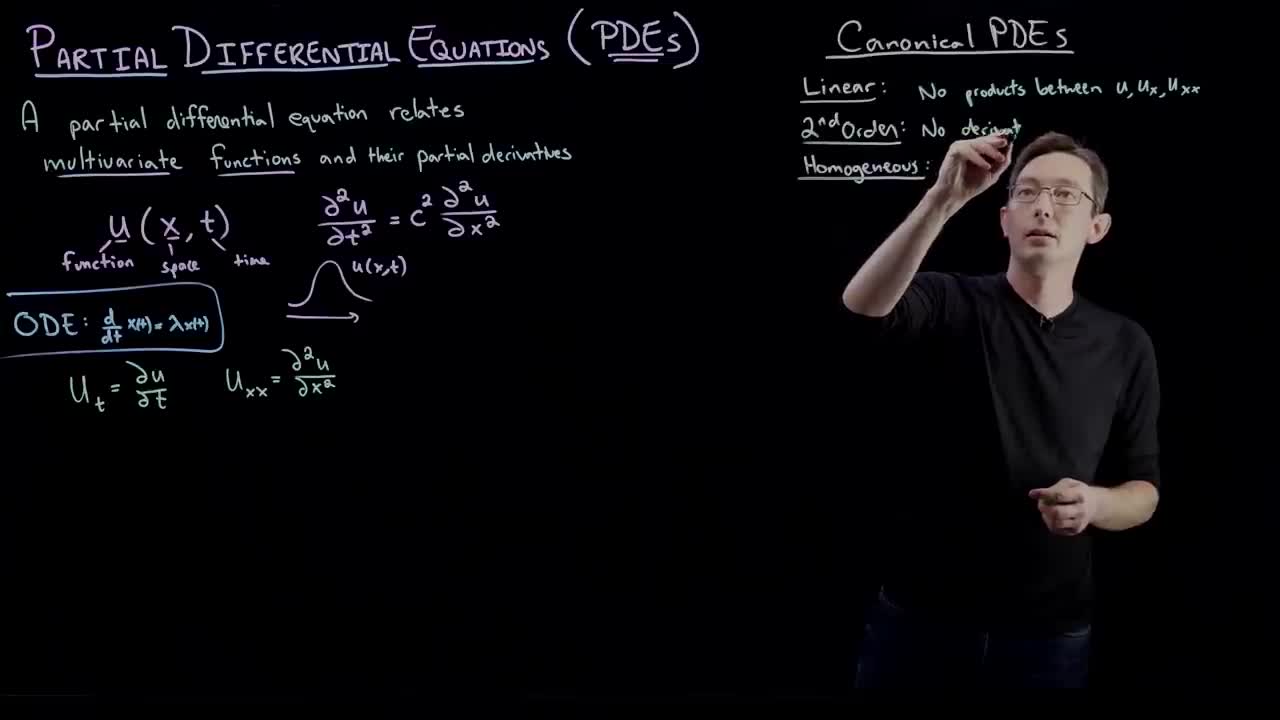 PARTIAL DIFFERENTIAL EQUATIONS (PDEs)
A partial differential equation relates
multivariate functions and their partial derivatives
u(x,t)
function space time
∂²u/∂t² = c² ∂²u/∂x²
u(x,t)
ODE: d/dt x(t) = λx(t)
U_t = ∂u/∂t U_xx = ∂²u/∂x²
Canonical PDEs
Linear: No products between u, ux, uxx
2nd Order: No derivat
Homogeneous: